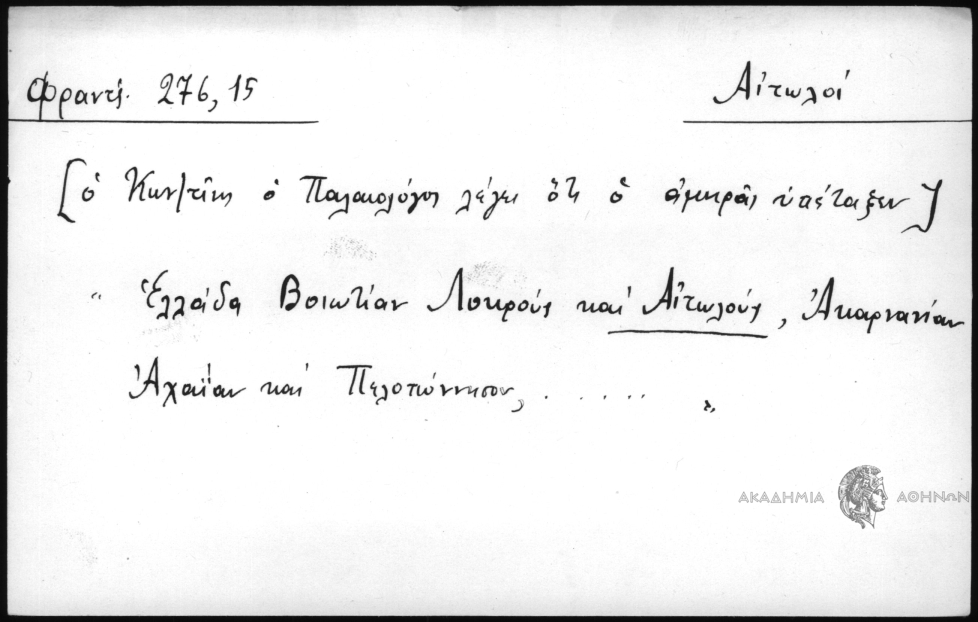 Φραντζ. 276, 15
Αἰτωλοί
[ὁ Κων/τῖνος ὁ Παλαιολόγος λέγει ὅτι ὁ ἀμηρᾶς ὑπέταξεν]
" Ἑλλάδα Βοιωτίαν Λοκρούς καί Αἰτωλούς, Ἀκαρνανίαν
Ἀχαΐαν καί Πελοπόννησον, . . . . . "
ΑΚΑΔΗΜΙΑ ΑΘΗΝΩΝ